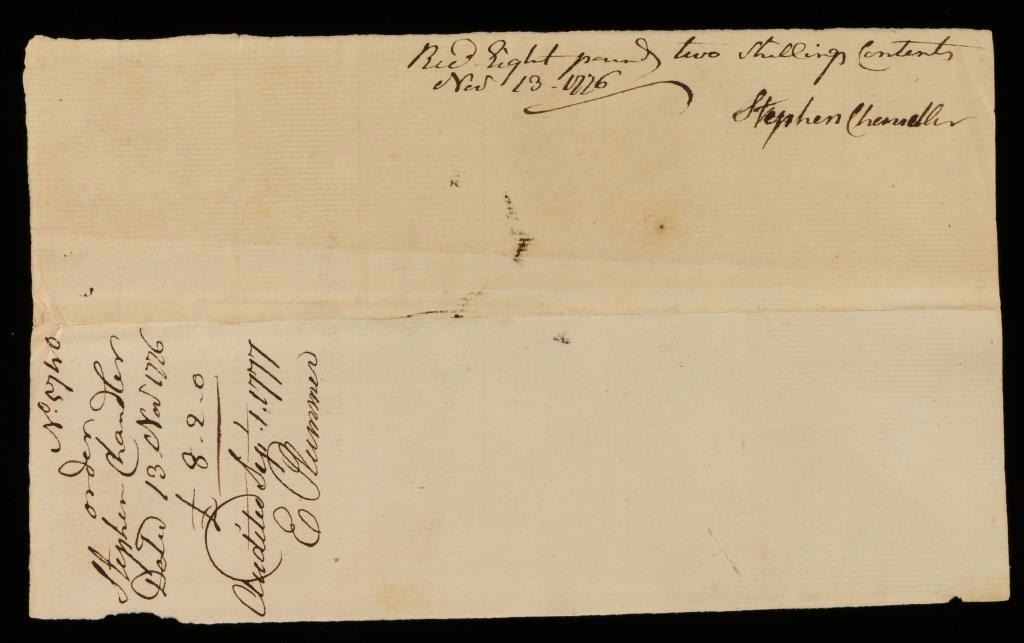 Recd Eight pounds two shillings Contents
Nov 13 - 1776
Stephen Chandler
No. 5740
order
Stephen Chandler
Dated 13 Nov 1776
£ 8-2-0
Audited Sepr 1. 1777
E Plummer